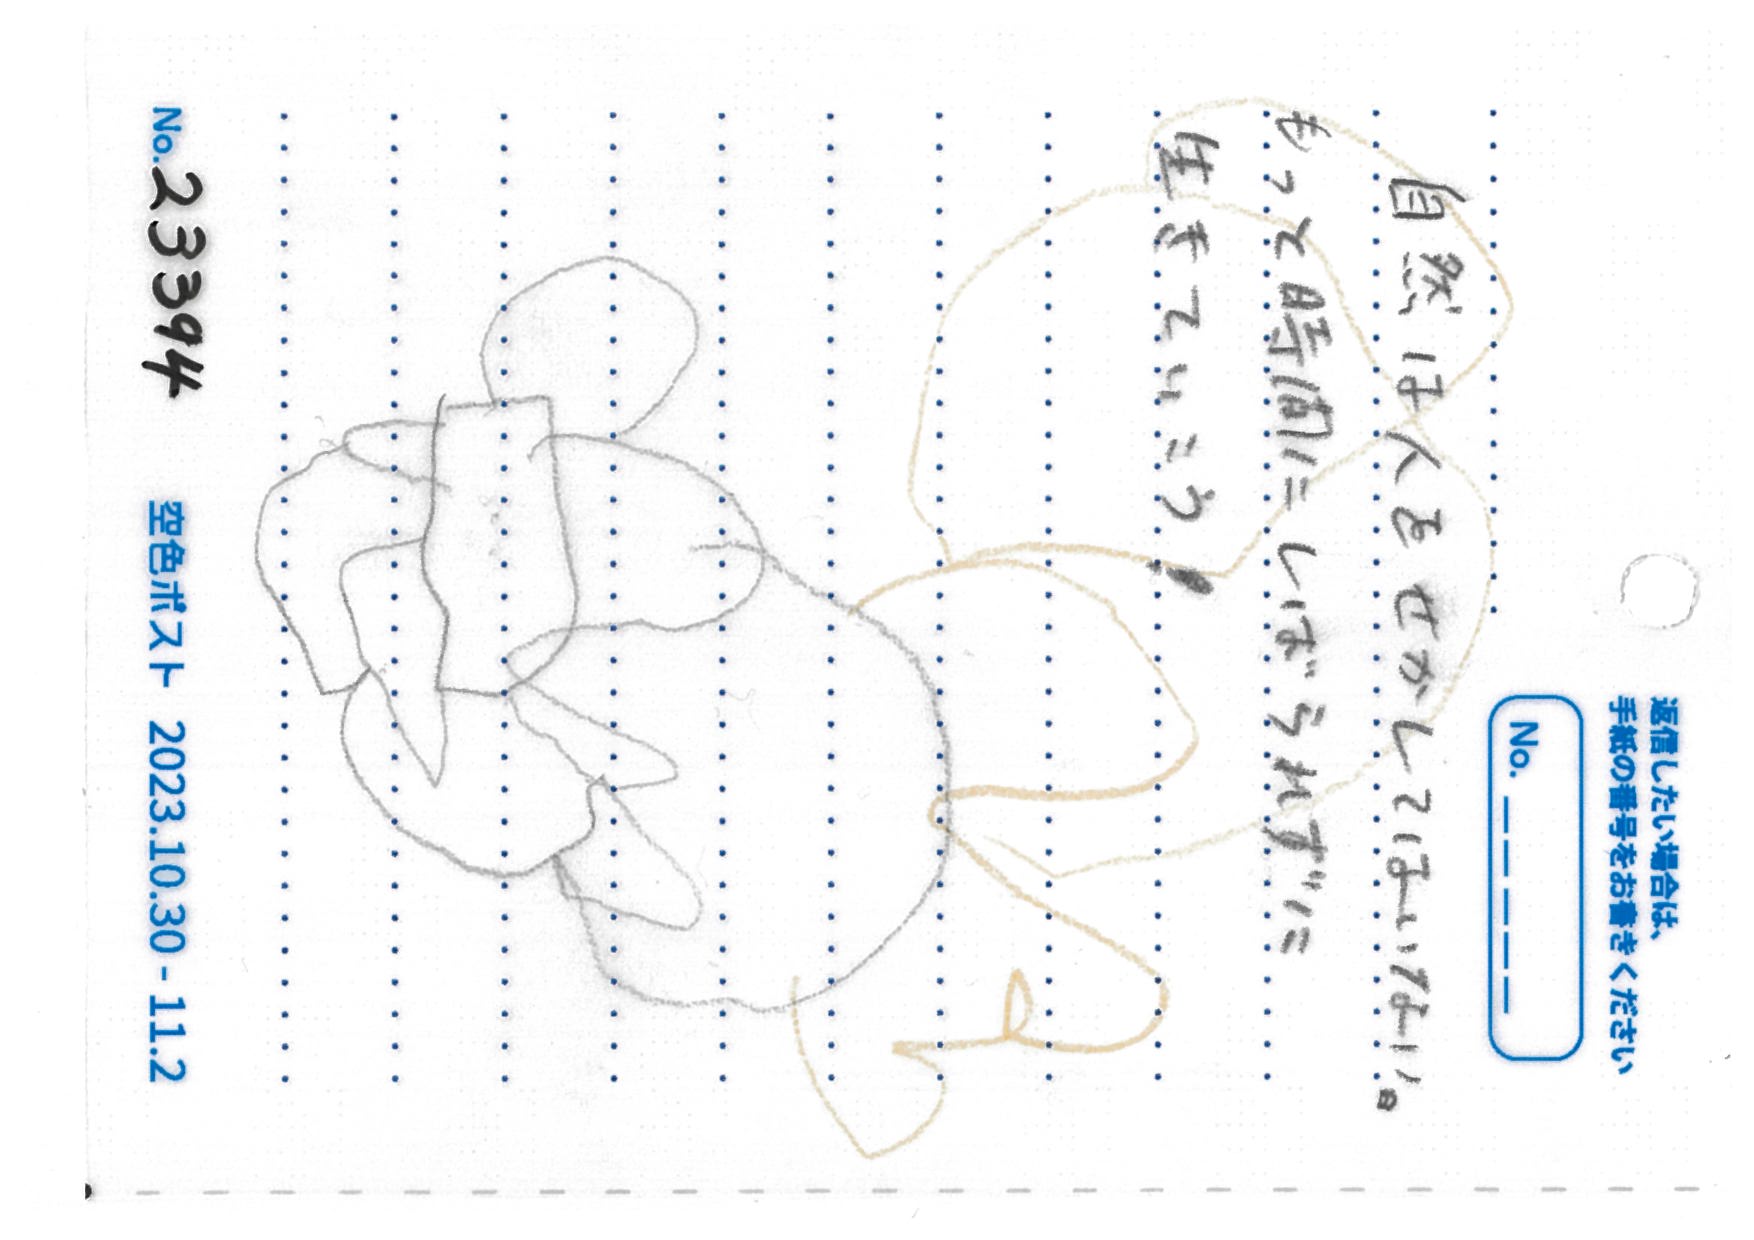 返信したい場合は、
手紙の番号をお書きください
No. _ _ _ _ _
自然は人をせかしてはいない。
もっと時間にしばられずに
生きていこう!
No.23394
空色ポスト 2023.10.30 - 11.2